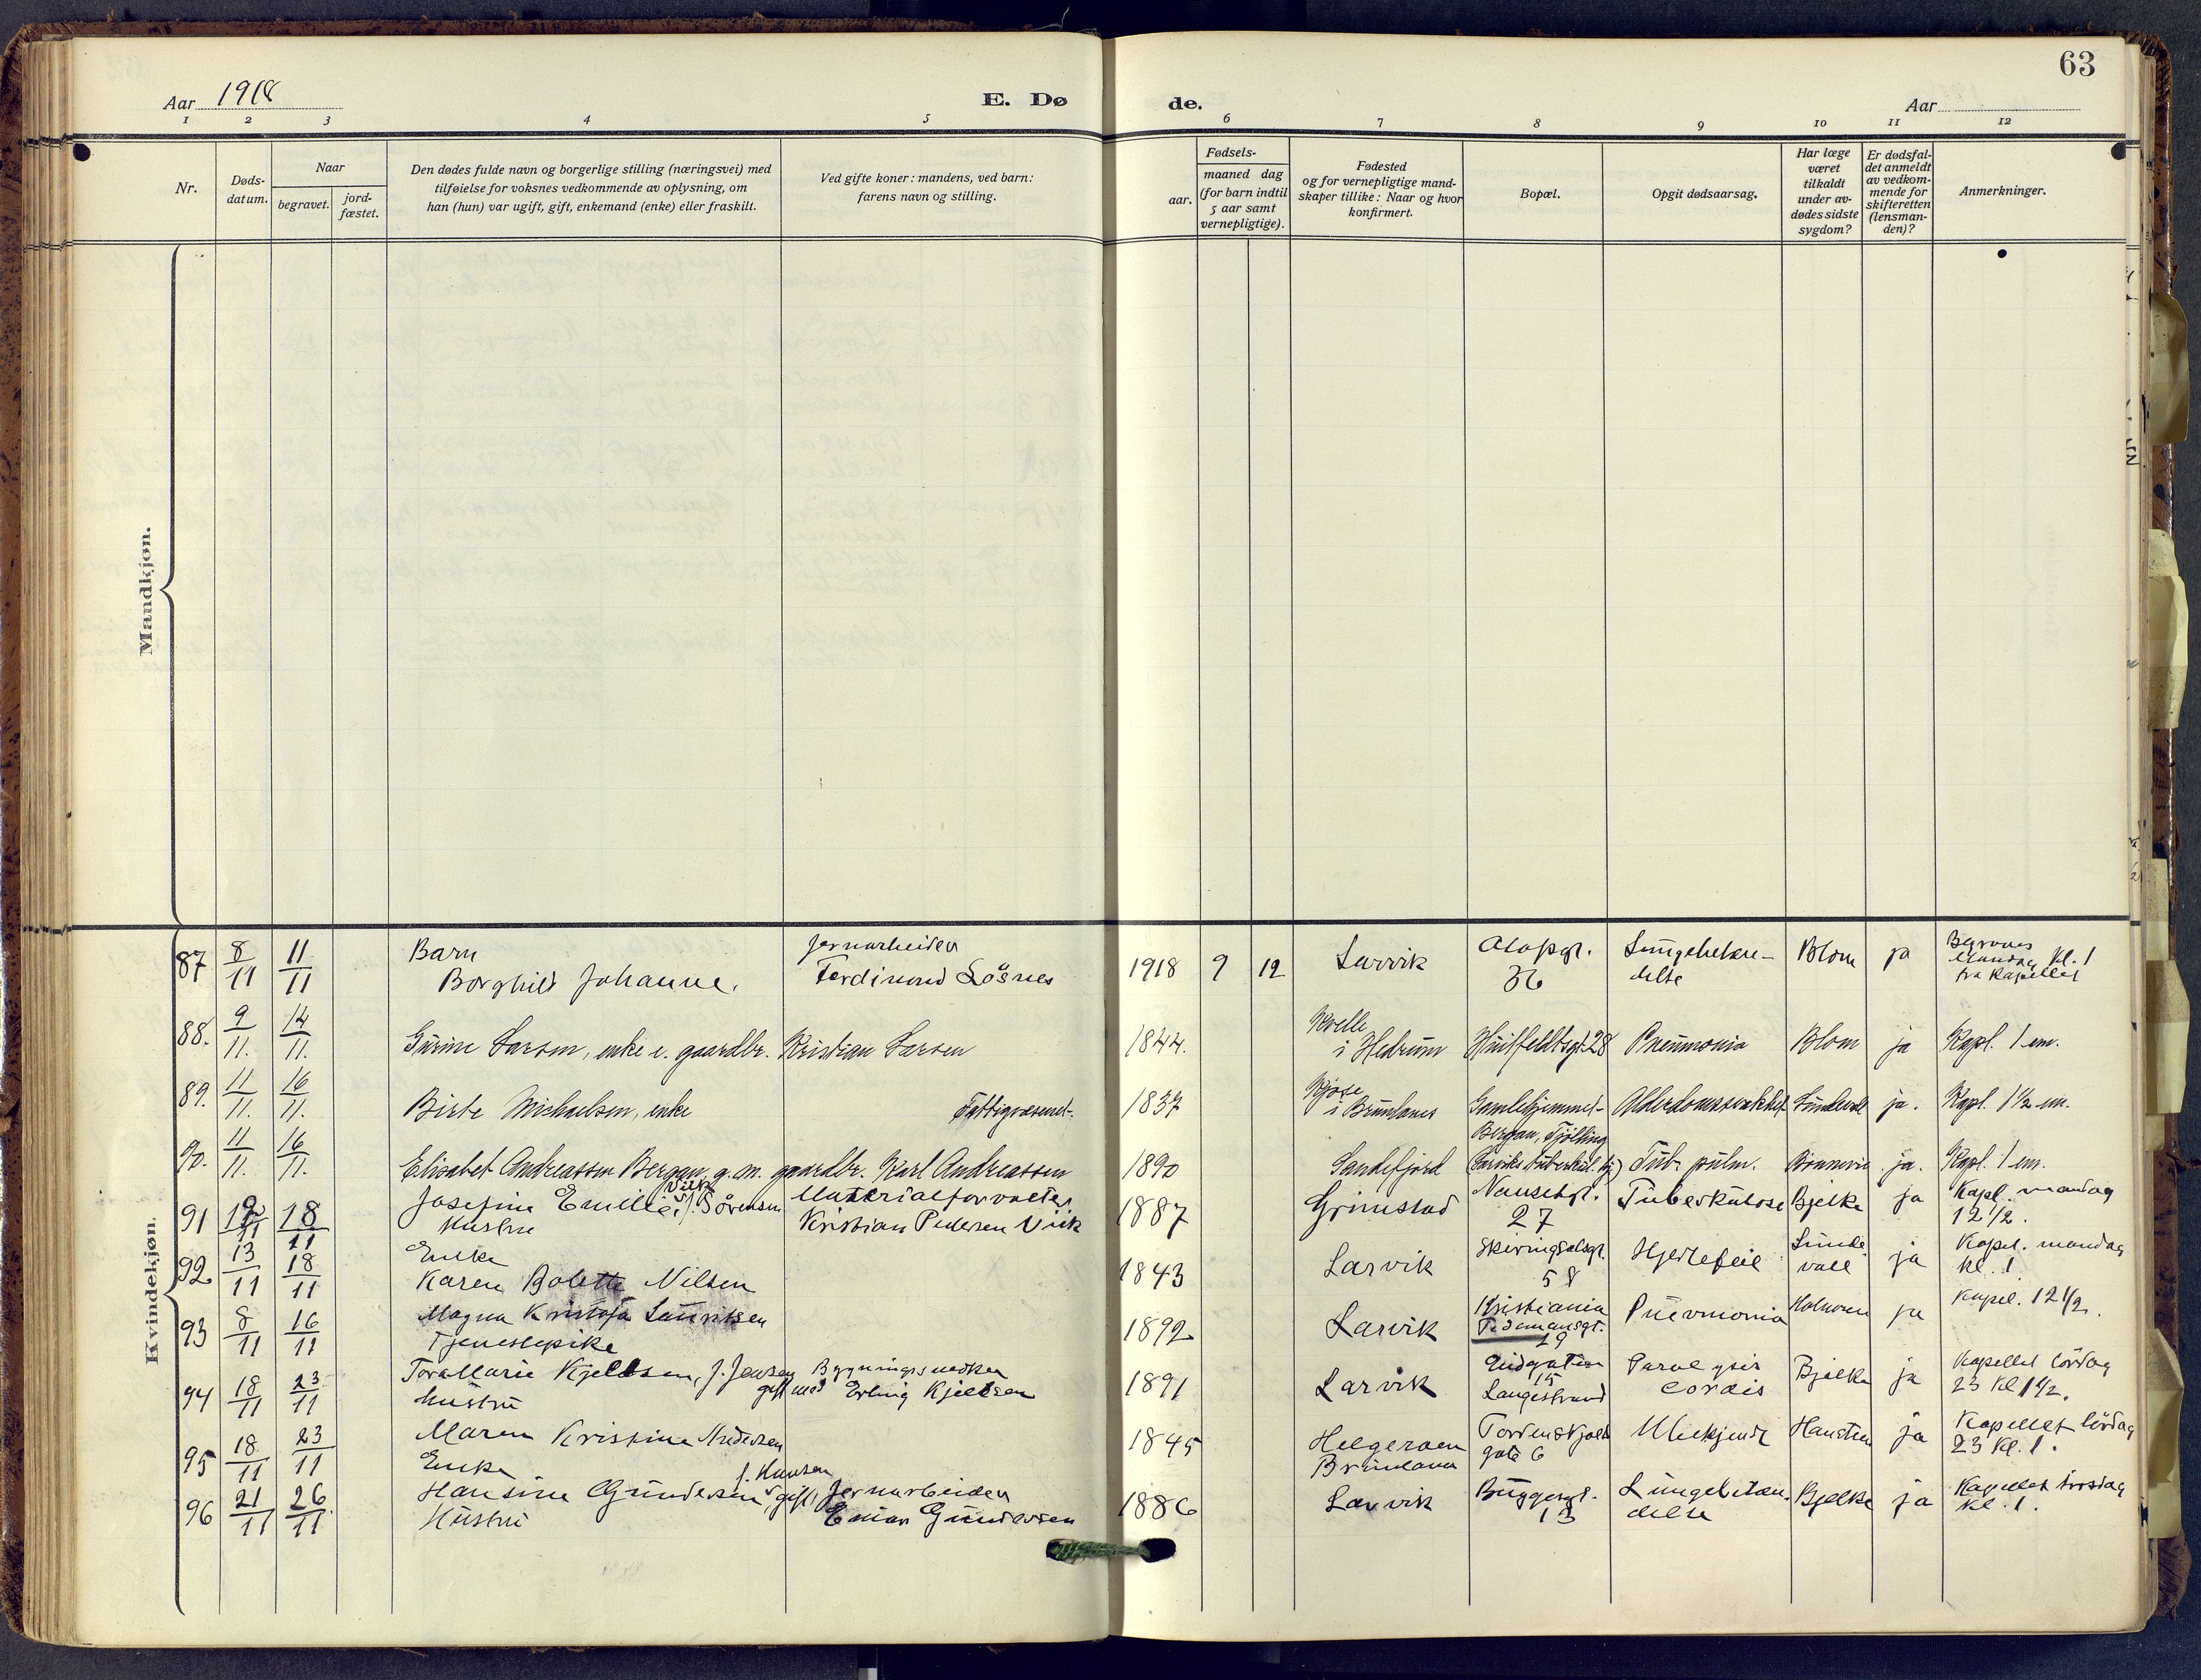 63
Aar 1918
E. Dø
de.
Aar
1 2 3 4 5 6 7 8 9 10 11 12
Nr.
Døds-
datum.
Naar
begravet.
jord-
fæstet.
Den dødes fulde navn og borgerlige stilling (næringsvei) med
tilføielse for voksnes vedkommende av oplysning, om
han (hun) var ugift, gift, enkemand (enke) eller fraskilt.
Ved gifte koner: mandens, ved barn:
farens navn og stilling.
Fødsels-
aar.
maaned dag
(for barn indtil
5 aar samt
vernepligtige).
Fødested
og for vernepligtige mand-
skaper tillike: Naar og hvor
konfirmert.
Bopæl.
Opgit dødsaarsag.
Har læge
været
tilkaldt
under av-
dødes sidste
sygdom?
Er dødsfal-
det anmeldt
av vedkom-
mende for
skifteretten
(lensman-
den)?
Anmerkninger.
Mandkjøn.
Kvindekjøn.
87 8/11 11/11 Barn Jernarbeider
Borghild Johanne. Ferdinand Løsnes
1918 9 12 Larvik Olafsgt. 36 Lungebetæn-
delse Blom ja Begraves
Mandag Kl. 1
fra Kapellet
88. 9/11. 14/11. Gurine Larsen, enke e. gaardbr. Kristian Larsen
1844. Kvelle
i Hedrum Huitfeldtsgt 28 Pneumonia Blom ja Kapl. 1 em.
89. 11/11. 16/11. Birte Michaelsen, enke Fattigvæsenet.
1837 Kjose
i Brunlanes Gamlehjemmet Alderdomssvakhet Lundevall ja. Kapl. 1½ em.
90. 11/11. 16/11. Elisabet Andreassen Bergan, g. m. gaardbr. Karl Andreassen
1890 Sandefjord Bergan, Tjølling
Tub. pulm. ja. Kapl. 1 em.
91 12/11 18/11 Josefine Emilie Viik f. Sørensen Materialforvalter
Hustru Kristian Pedersen Viik
1887 Grimstad Nansetgt.
27 Tuberkulose Bjelke ja Kapl. mandag
12 1/2.
92. 13/11 18/11 Enke
Karen Bolette Nilsen
1843 Larvik Skiringsalsgt.
58 Hjertefeil Lunde
vall ja Kapel. mandag
kl. 1
93 8/11 16/11 Magna Kristofa Lauritsen
Tjenestepike
1892 Larvik Kristiania
Tidemansgt.
29 Pnevmonia ja Kapel. 12 1/2.
94 18/11 23/11 Tora Marie Kjeldsen, f. Jensen Bygningssnedker
Hustru gift med Erling Kjeldsen
1891 Larvik
15
Langestrand Paralysis
cordis Bjelke ja Kapellet lørdag
23 Kl 1 1/2.
95 18/11 23/11 Maren Kristine Andersen
Enke
1845 Helgeroen
Brunlanes Tordenskjolds
gate 6 Ukjendt Hansteen ja Kapellet lørdag
23 Kl. 1.
96 21/11 26/11 Hansine Gundersen, f. Hansen gift, Jernarbeider
Hustru Einar Gundersen
1886 Larvik Buggesgt.
13 Lungebetæn-
delse Bjelke ja Kapellet tirsdag
Kl. 1.